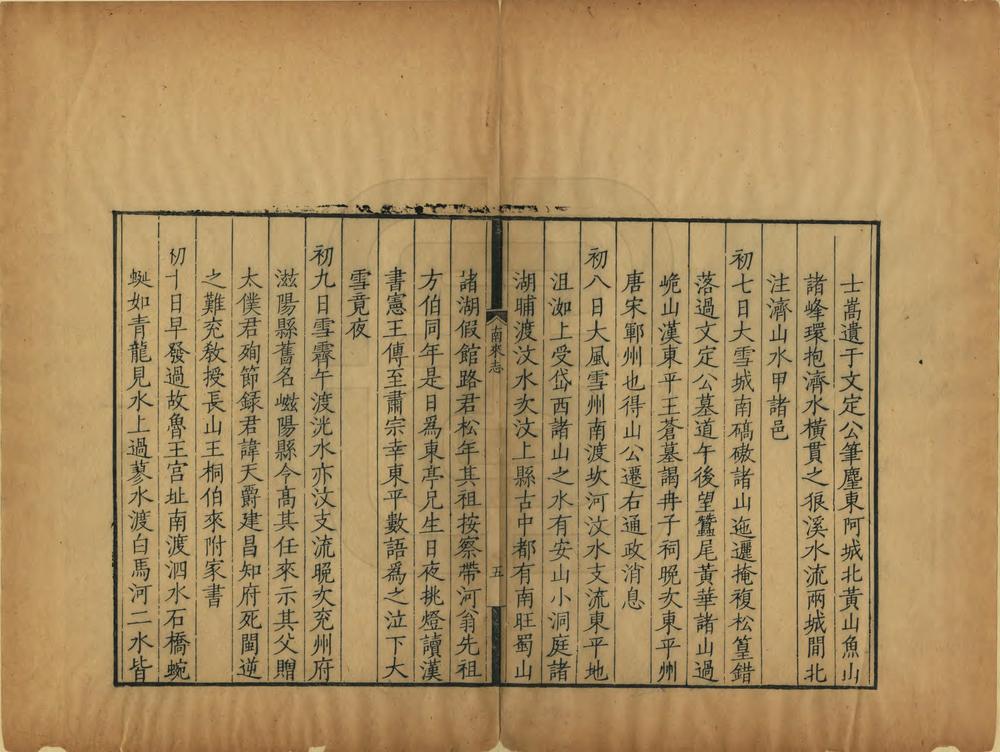 士嵩遺于文定公筆麈東阿城北黃山魚山
諸峰環抱濟水橫貫之狼溪水流兩城間北
注濟山水甲諸邑
初七日大雪城南碻磝諸山迤邐掩複松篁錯
落過文定公墓道午後望蠶尾黃華諸山過
峗山漢東平王蒼墓謁冉子祠晚次東平州
唐宋鄆州也得山公遷右通政消息
初八日大風雪州南渡坎河汶水支流東平地
沮洳上受岱西諸山之水有安山小洞庭諸
湖晡渡汶水次汶上縣古中都有南旺蜀山
南來志
五
諸湖假館路君松年其祖按察帶河翁先祖
方伯同年是日為東亭兄生日夜挑燈讀漢
書憲王傳至肅宗幸東平數語為之泣下大
雪竟夜
初九日雪霽午渡洸水亦汶支流晚次兖州府
滋陽縣舊名嵫陽縣今高其任來示其父贈
太僕君殉節録君諱天爵建昌知府死閩逆
之難兖敎授長山王桐伯來附家書
初十日早發過故魯王宮址南渡泗水石橋蜿
蜒如青龍見水上過蓼水渡白馬河二水皆